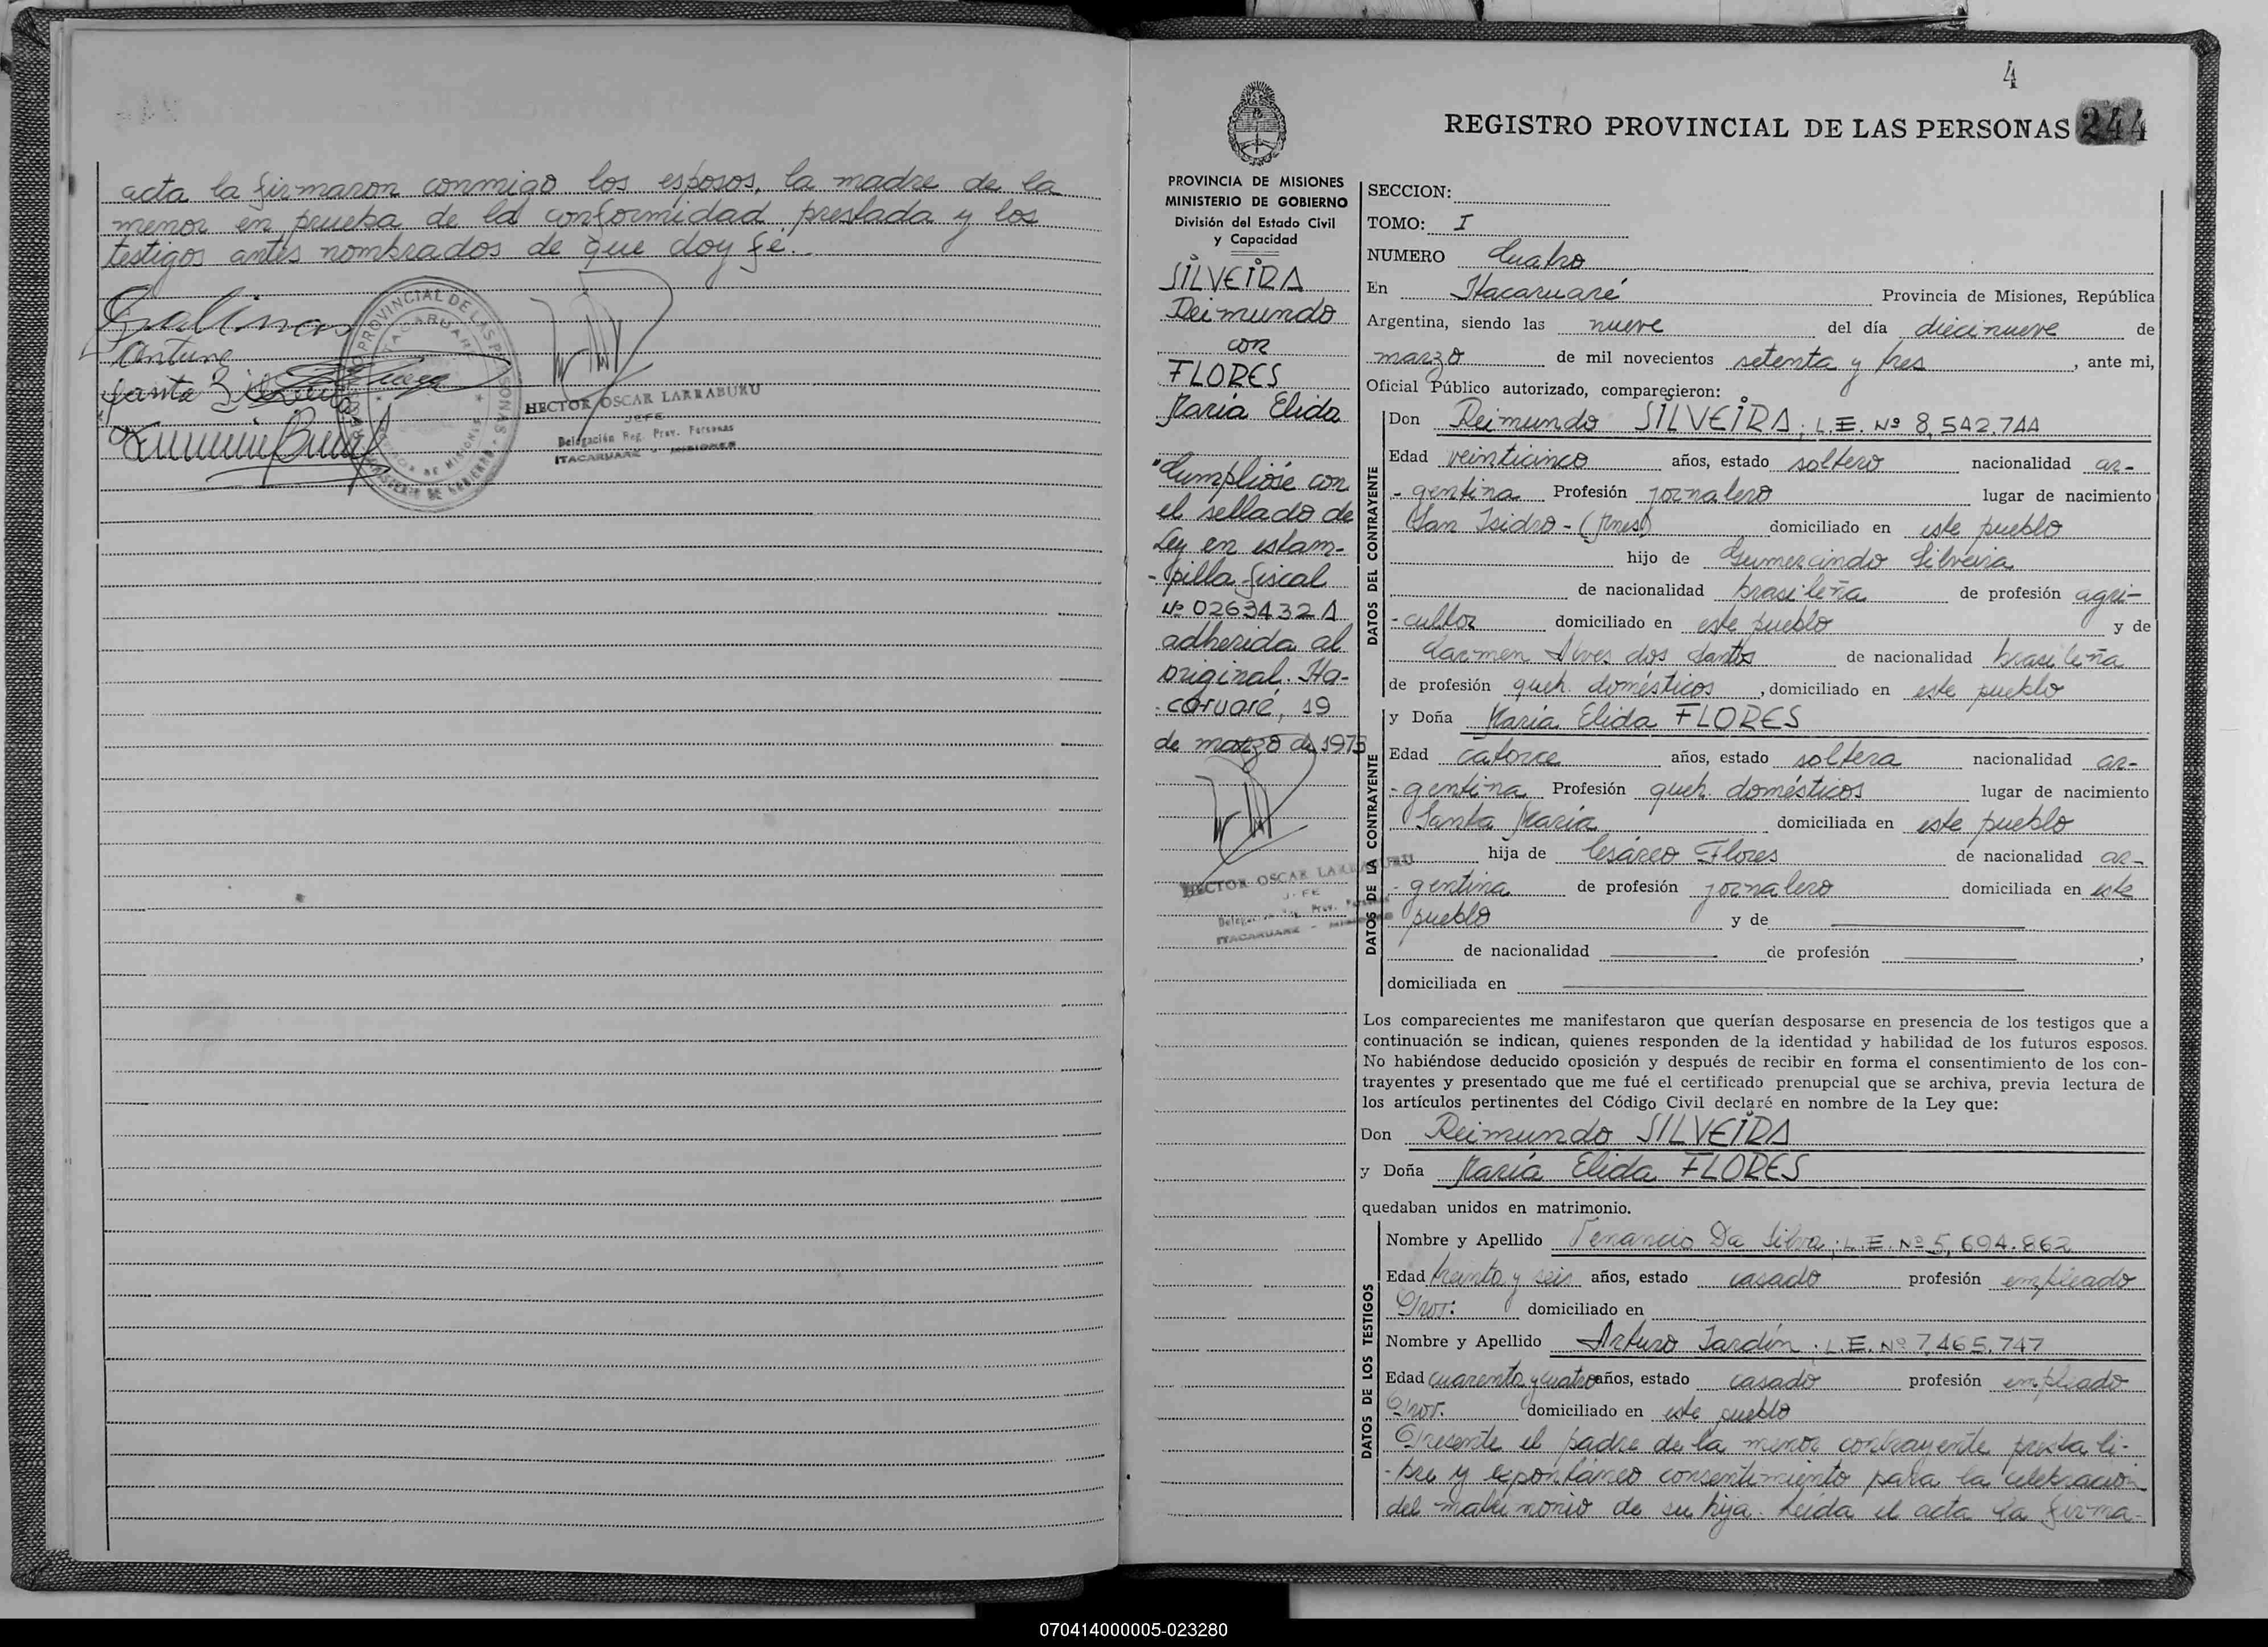 acta la firmaron conmigo los esposos, la madre de la
menor en prueba de la conformidad prestada y los
testigos antes nombrados de que doy fé.
HECTOR OSCAR LARRABURU
JEFE
Delegación Reg. Prov. Personas
ITACARUARE - MISIONES
4
REGISTRO PROVINCIAL DE LAS PERSONAS 244
PROVINCIA DE MISIONES
MINISTERIO DE GOBIERNO
División del Estado Civil
y Capacidad
SILVEIRA
Reimundo
con
FLORES
María Elida
"Cumplióse con
el sellado de
Ley en estam-
-pilla fiscal
Nº 0263432 A
adherida al
original. Ita-
-caruaré, 19
de marzo de 1973
HECTOR OSCAR LARRABURU
JEFE
Delegación Reg. Prov. Personas
ITACARUARE - MISIONES
SECCION:
TOMO: I
NUMERO Cuatro
En Itacaruaré Provincia de Misiones, República
Argentina, siendo las nueve del día diecinueve de
marzo de mil novecientos setenta y tres, ante mi,
Oficial Público autorizado, comparecieron:
DATOS DEL CONTRAYENTE
Don Reimundo SILVEIRA; L.E. Nº 8,542.744
Edad veinticinco años, estado soltero nacionalidad ar-
-gentina Profesión jornalero lugar de nacimiento
San Isidro - (Mnes) domiciliado en este pueblo
hijo de Gumercindo Silveira
de nacionalidad brasileña de profesión agri-
-cultor domiciliado en este pueblo y de
Carmen Alves dos Santos de nacionalidad brasileña
de profesión queh. domésticos, domiciliado en este pueblo
DATOS DE LA CONTRAYENTE
y Doña María Elida FLORES
Edad catorce años, estado soltera nacionalidad ar-
-gentina Profesión queh. domésticos lugar de nacimiento
Santa María domiciliada en este pueblo
hija de Cesáreo Flores de nacionalidad ar-
-gentina de profesión jornalero domiciliada en este
pueblo y de
de nacionalidad de profesión ,
domiciliada en
Los comparecientes me manifestaron que querían desposarse en presencia de los testigos que a
continuación se indican, quienes responden de la identidad y habilidad de los futuros esposos.
No habiéndose deducido oposición y después de recibir en forma el consentimiento de los con-
trayentes y presentado que me fué el certificado prenupcial que se archiva, previa lectura de
los artículos pertinentes del Código Civil declaré en nombre de la Ley que:
Don Reimundo SILVEIRA
y Doña María Elida FLORES
quedaban unidos en matrimonio.
DATOS DE LOS TESTIGOS
Nombre y Apellido Venancio Da Silva; L.E. Nº 5,694.862
Edad treinta y seis años, estado casado profesión empleado
Prov: domiciliado en
Nombre y Apellido Arturo Jardín; L.E. Nº 7,465.747
Edad cuarenta y cuatro años, estado casado profesión empleado
Prov. domiciliado en este pueblo
Presente el padre de la menor contrayente presta li-
-bre y espontáneo consentimiento para la celebración
del matrimonio de su hija. Leída el acta la firma-
070414000005-023280